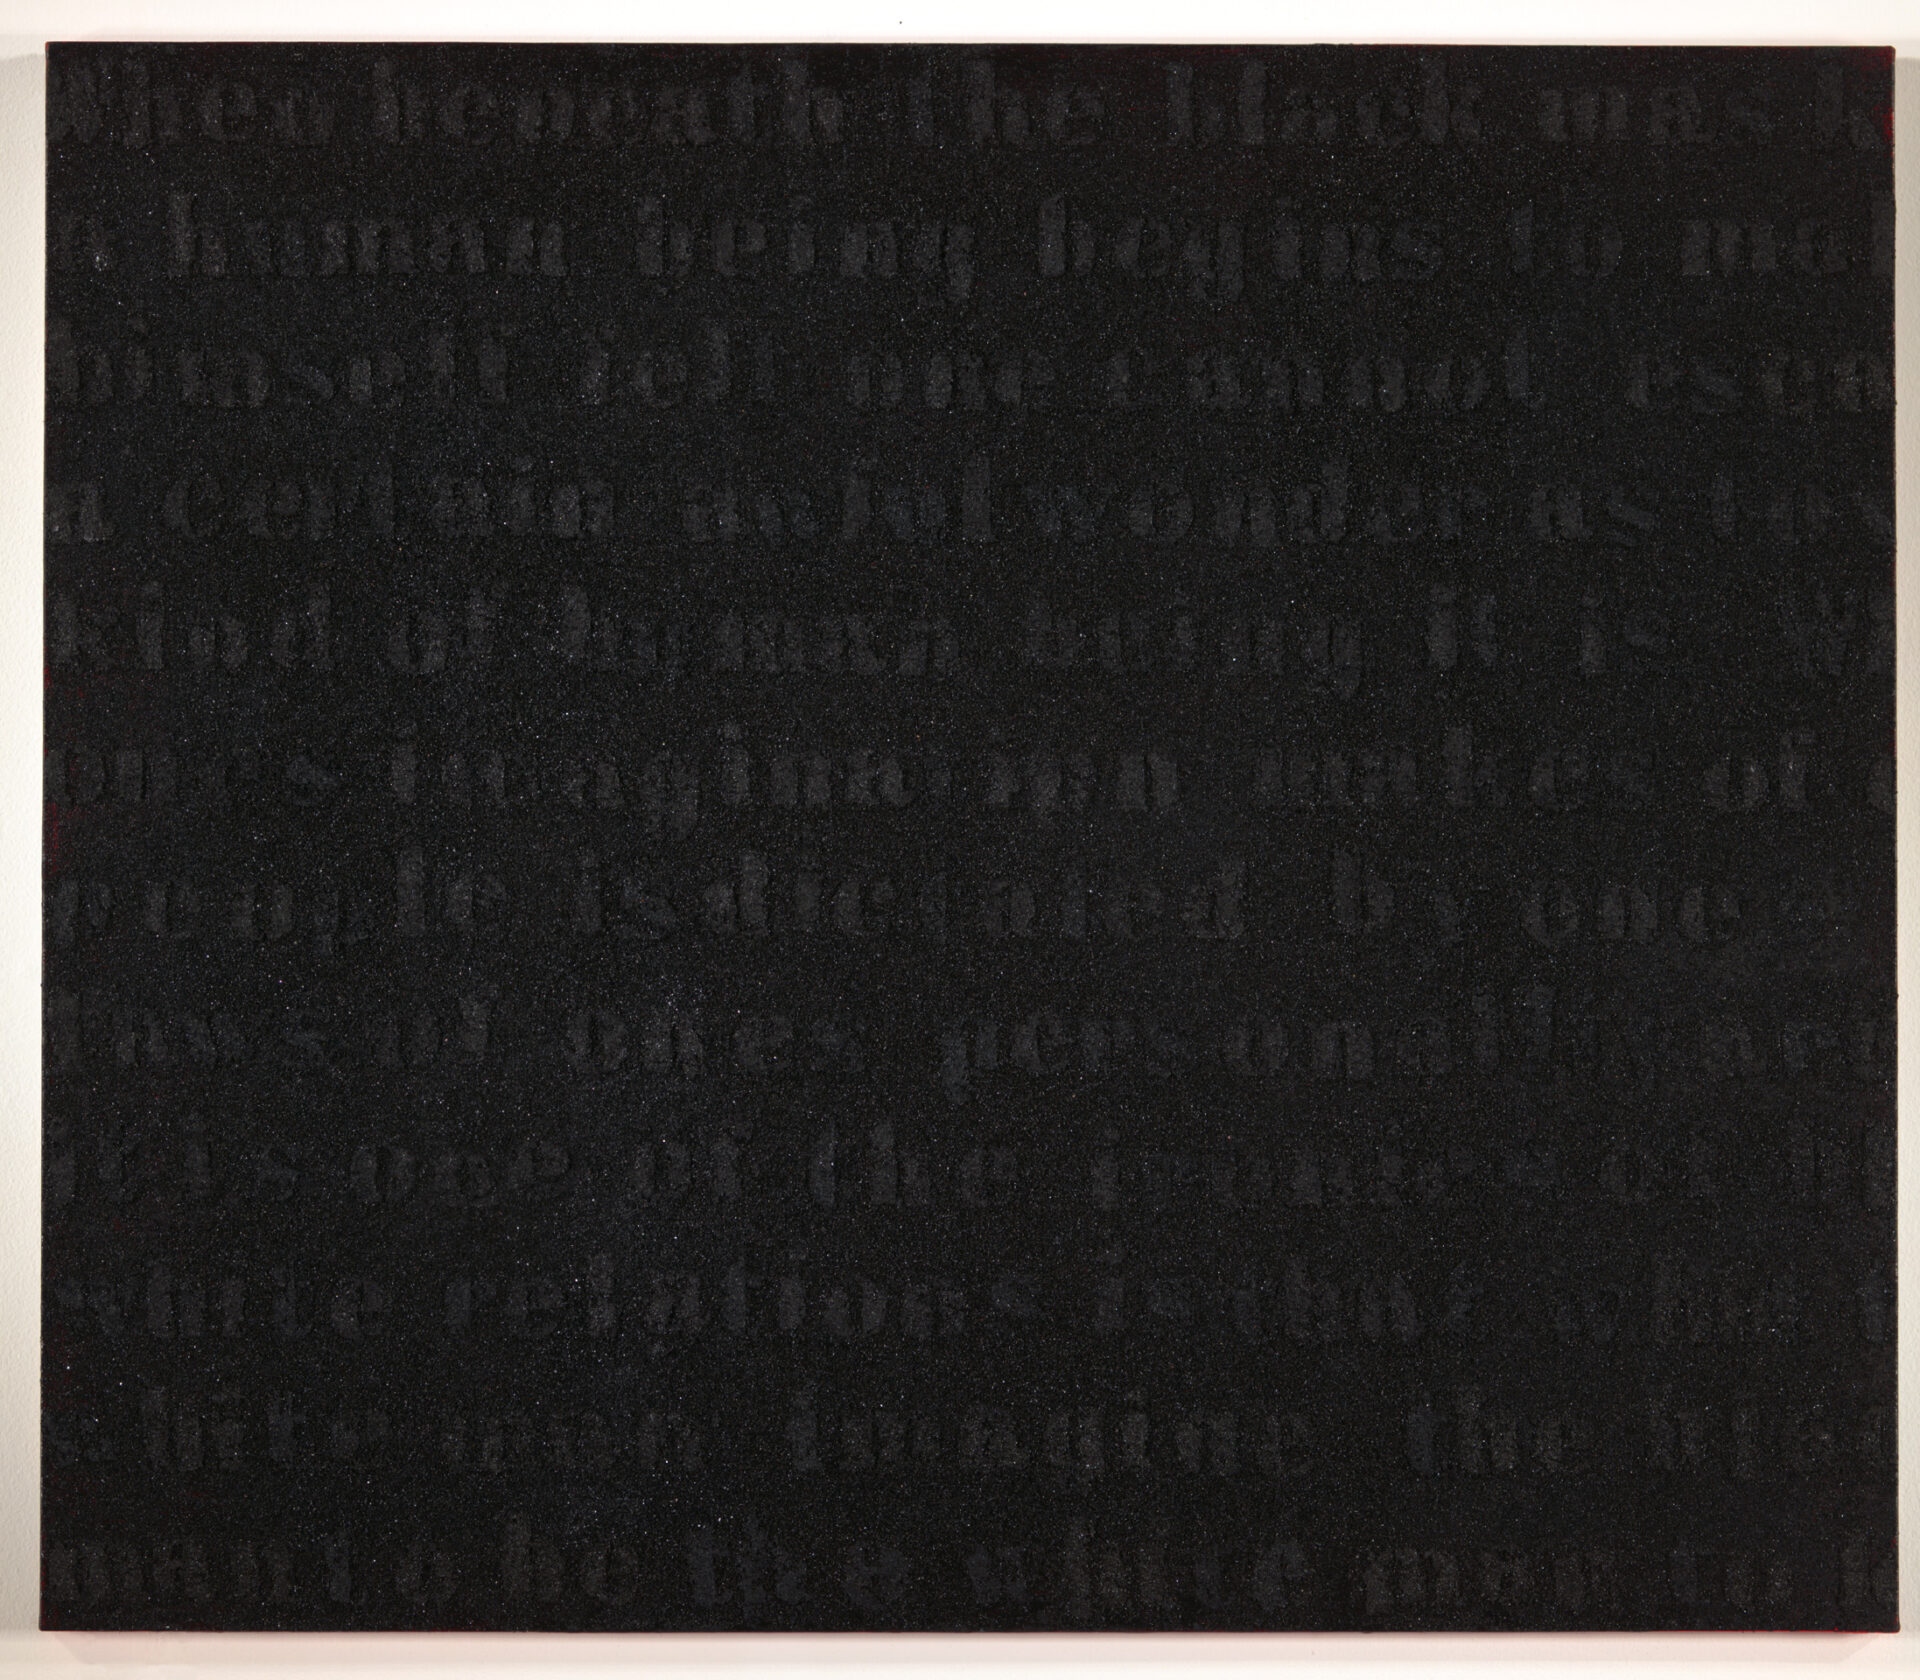 when beneath the black mask
a human being begins to mak
himself felt one cannot esca
a certain awful wonder as to
kind of human being it is w
ones imagination makes of o
people is dictated by one s
laws of ones personality
it is one of the of b
white relations is that what
white men imagine the
man to be the white man